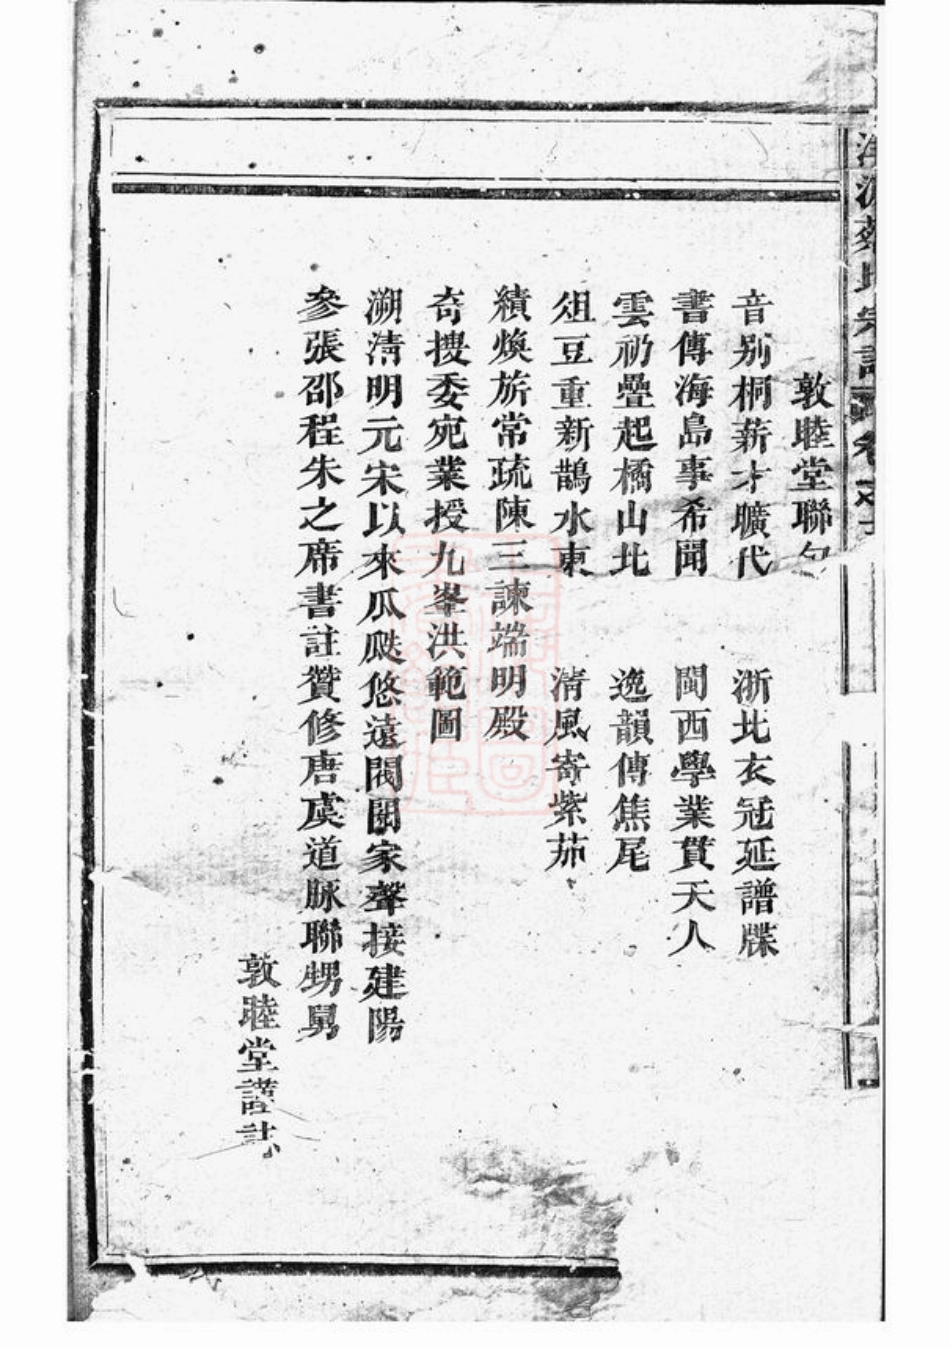 蔡氏宗譜
敦睦堂聯句
音别桐薪才曠代　浙北衣冠延譜牒
書傳海島事希聞　閩西學業貫天人
雲礽疊起橘山北　逸韻傳焦尾
俎豆重新鵲水東　清風寄紫茄
績煥旂常疏陳三諫端明殿
奇搜委宛業授九峯洪範圖
溯清明元宋以來瓜瓞悠遠閥閱家聲接建陽
參張邵程朱之席書註贊修唐虞道脉聯甥舅
敦睦堂謹誌